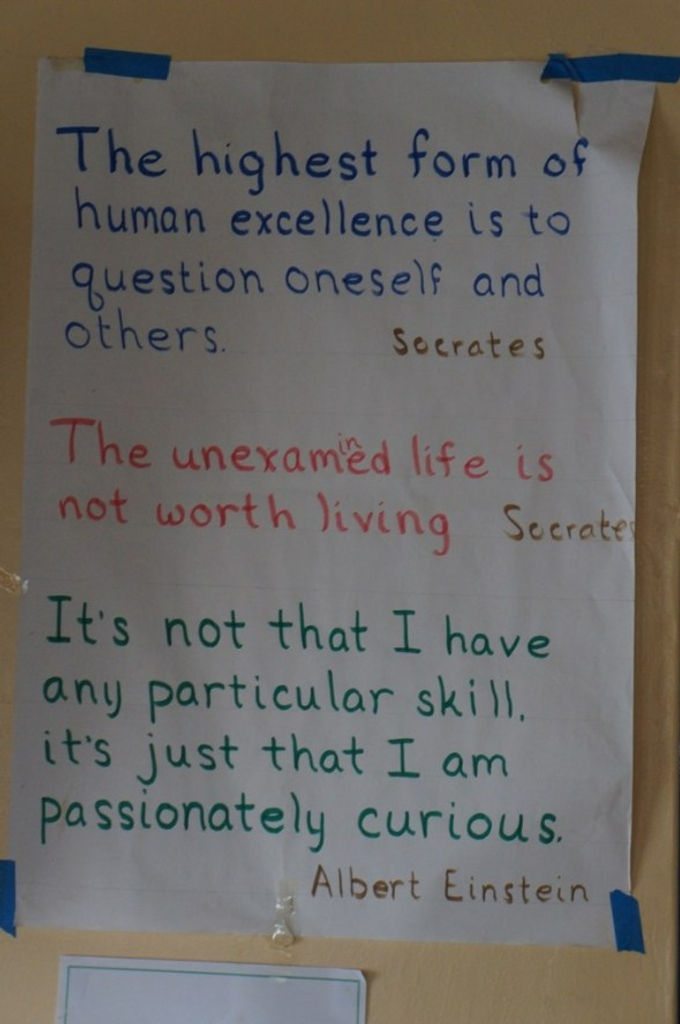 The highest form of
human excellence is to
question oneself and
others. Socrates
The unexamined life is
not worth living Socrates
It's not that I have
any particular skill.
it's just that I am
passionately curious.
Albert Einstein